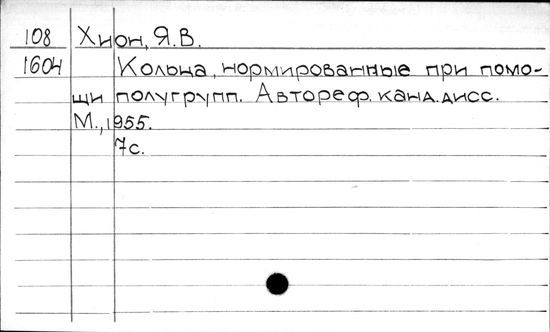 108 Хион, Я.В.
1604 Кольца, нормированные при помо-
щи полугрупп. Автореф. канд. дисс.
М., 1955.
7с.